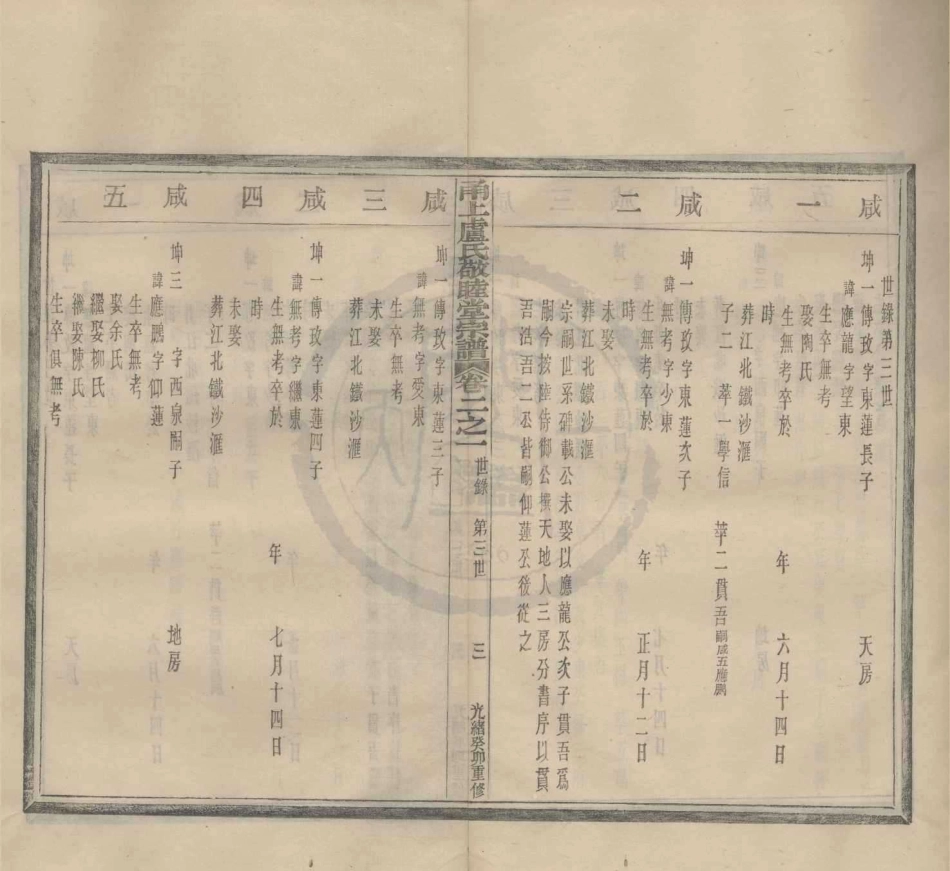 咸一
世錄第三世
坤一傳玫字東蓮長子　天房
諱應龍字望東
生卒無考
娶陶氏
生無考卒於　年　六月十四日
時
葬江北鐵沙滙
子二　萃一學信　萃二貫吾嗣咸五應鵬
咸二
坤一傳玫字東蓮次子
諱無考字少東
生無考卒於　年　正月十二日
時
未娶
葬江北鐵沙滙
宗嗣世系碑載公未娶以應龍公次子貫吾爲
嗣今按陸侍御公撰天地人三房分書序以貫
吾浩吾二公皆嗣仰蓮公後從之
咸三
甬上盧氏敬睦堂宗譜　卷二之一　世錄　第三世　三　光緒癸卯重修
坤一傳玫字東蓮三子
諱無考字愛東
生卒無考
未娶
葬江北鐵沙滙
咸四
坤一傳玫字東蓮四子
諱無考字繼東
生無考卒於　年　七月十四日
時
未娶
葬江北鐵沙滙
咸五
坤三　字西泉嗣子　地房
諱應鵬字仰蓮
生卒無考
娶余氏
繼娶柳氏
繼娶陳氏
生卒俱無考